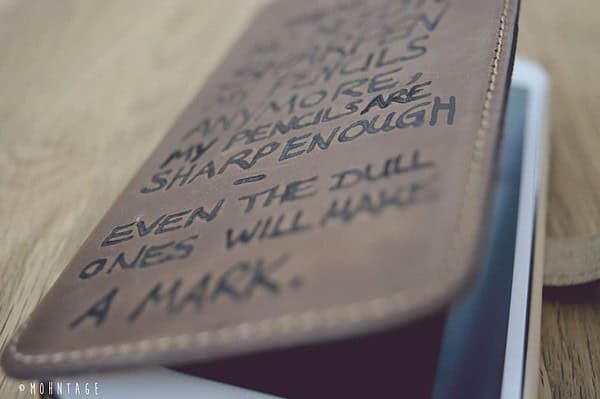 SHARPEN
MY PENCILS
ANYMORE,
MY PENCILS ARE
SHARP ENOUGH
–
EVEN THE DULL
ONES WILL MAKE
A MARK.
© MOHNTAGE